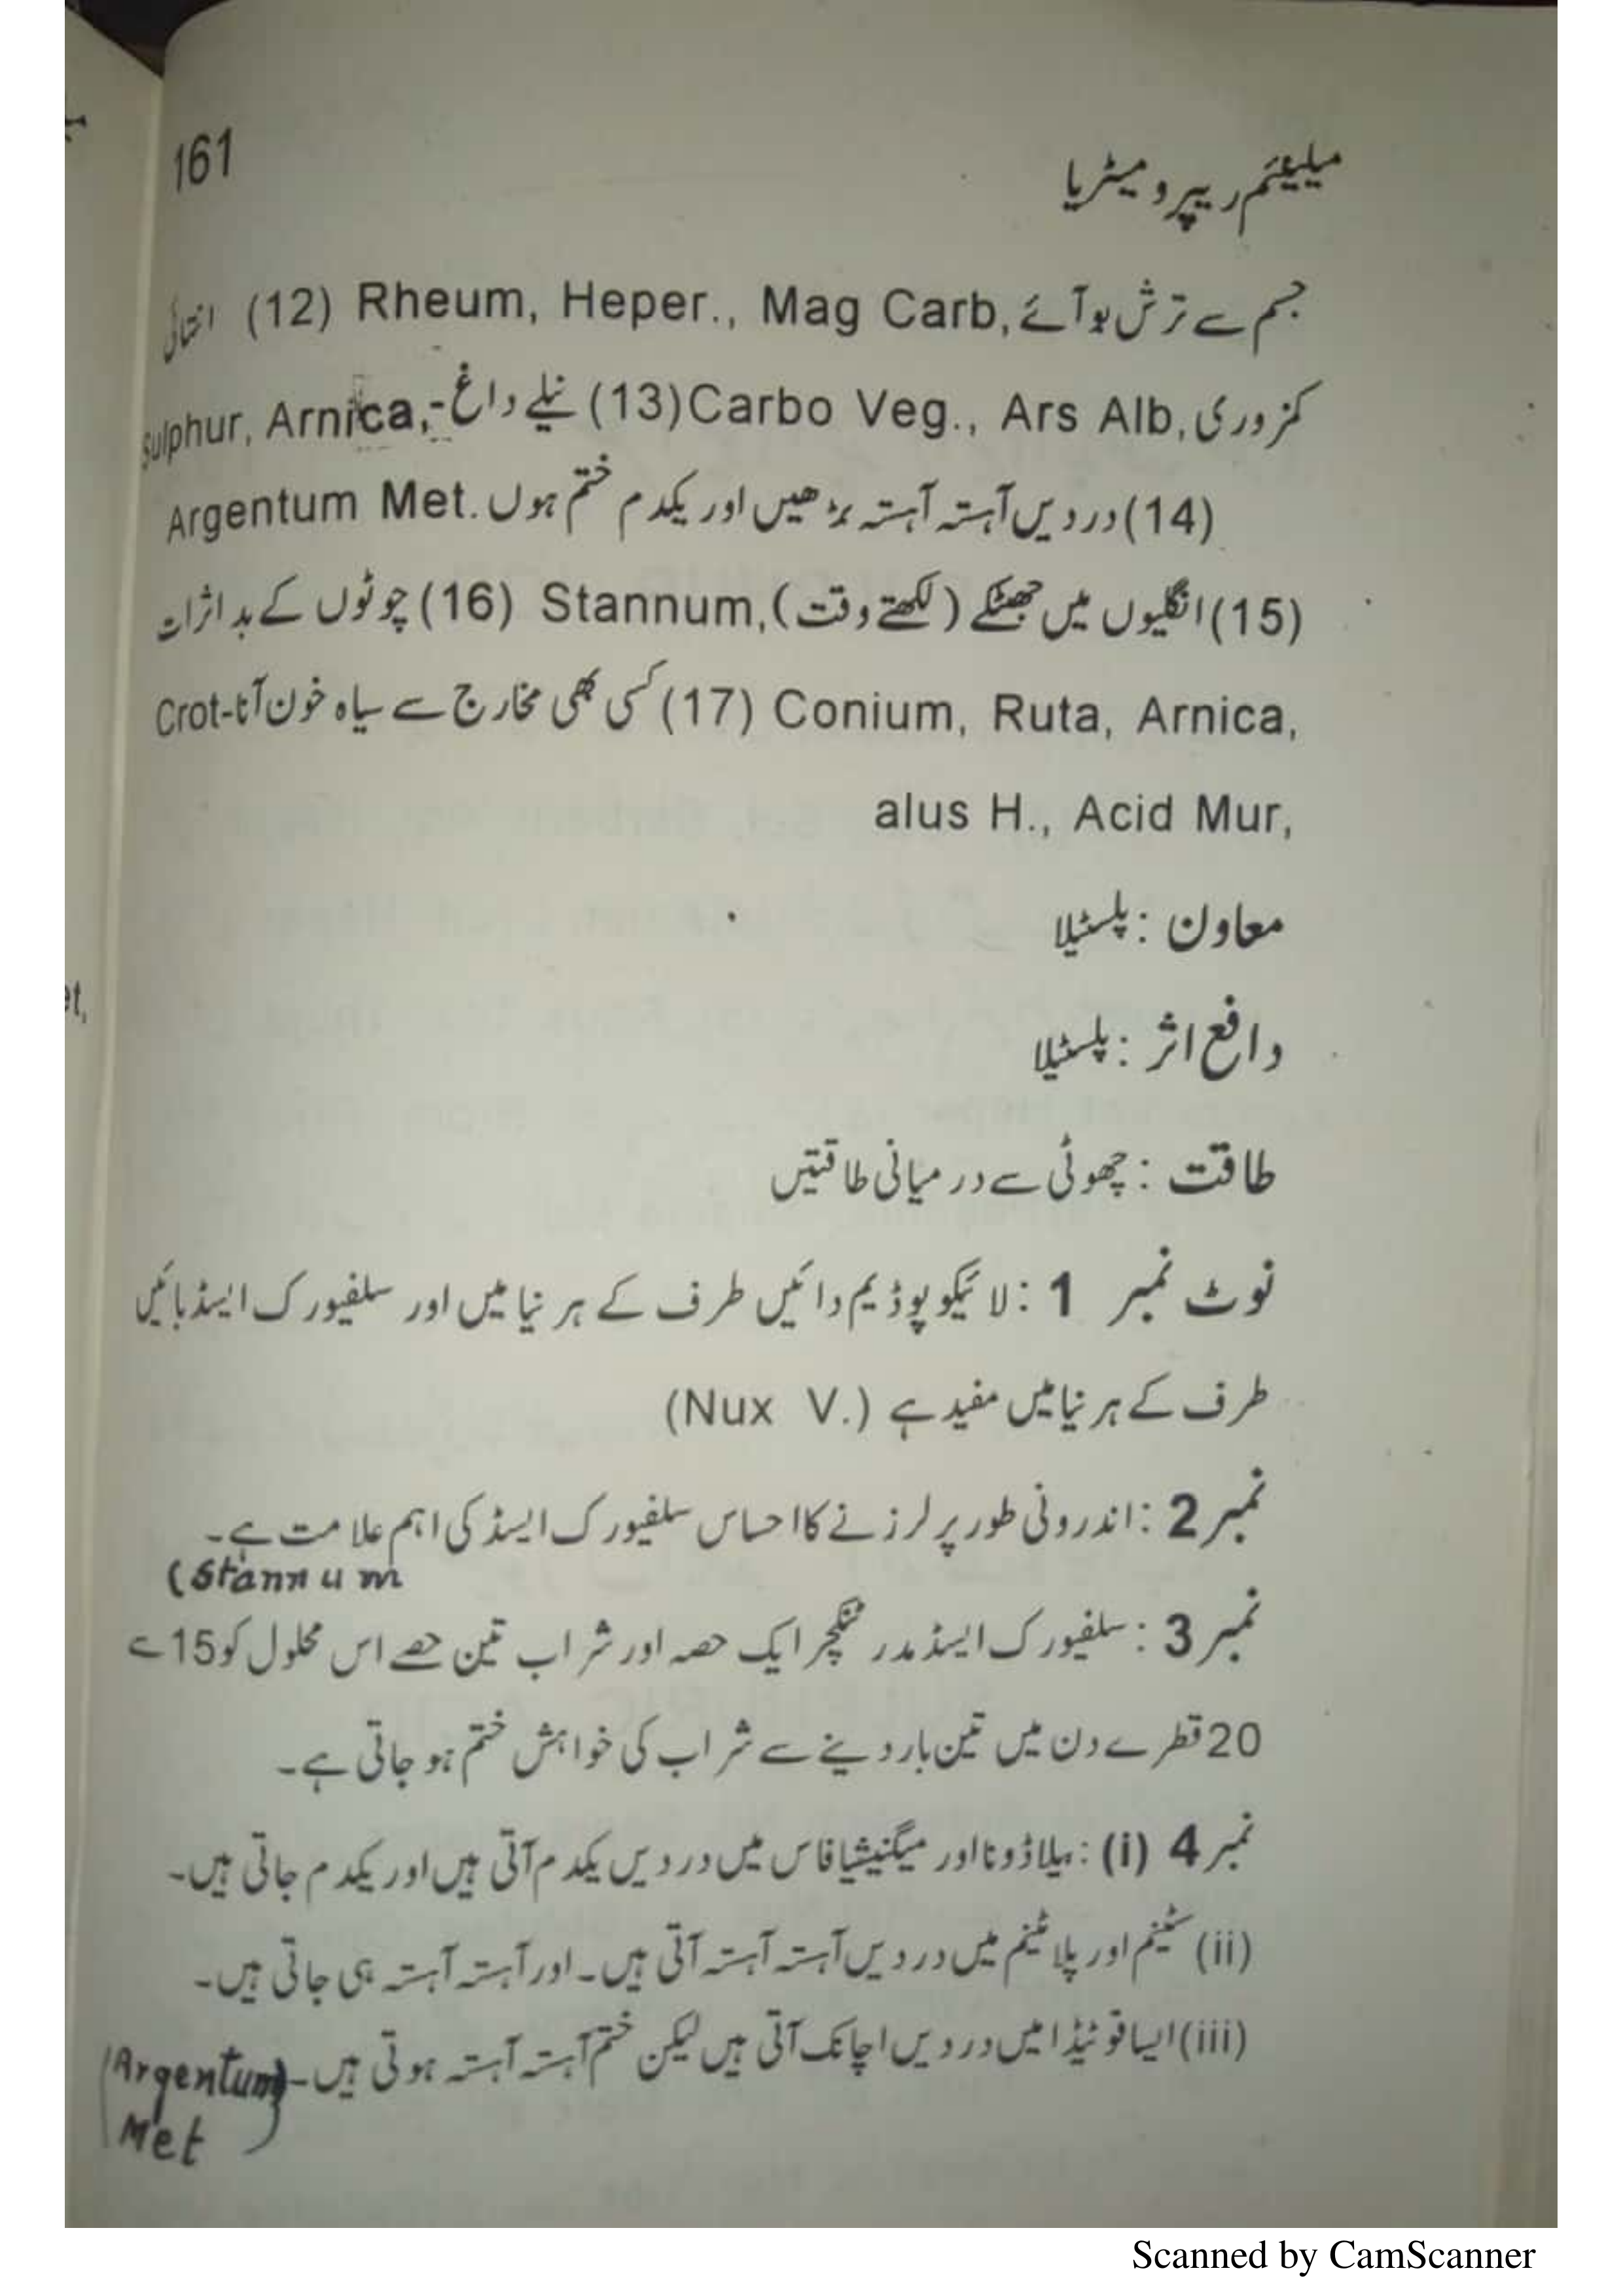 161
میلینئم ریپرومیٹریا
جسم سے ترش بو آئے Rheum, Heper., Mag Carb, (12) انتہائی
کمزوری Carbo Veg., Ars Alb, (13) نیلے داغ- Sulphur, Arnica,
(14) دردیں آہستہ آہستہ بڑھیں اور یکدم ختم ہوں Argentum Met.
(15) انگلیوں میں جھٹکے (لکھتے وقت) Stannum, (16) چوٹوں کے بد اثرات
Conium, Ruta, Arnica, (17) کسی بھی مخارج سے سیاہ خون آنا Crot-
alus H., Acid Mur,
معاون : پلسٹیلا
دافع اثر : پلسٹیلا
طاقت : چھوٹی سے درمیانی طاقتیں
نوٹ نمبر 1 : لائیکوپوڈیم دائیں طرف کے ہرنیا میں اور سلفیورک ایسڈ بائیں
طرف کے ہرنیا میں مفید ہے (Nux V.)
نمبر 2 : اندرونی طور پر لرزنے کا احساس سلفیورک ایسڈ کی اہم علامت ہے۔
(Stannum
نمبر 3 : سلفیورک ایسڈ مدر ٹنکچر ایک حصہ اور شراب تین حصے اس محلول کو 15 سے
20 قطرے دن میں تین بار دینے سے شراب کی خواہش ختم ہو جاتی ہے۔
نمبر 4 (i) : بیلاڈونا اور میگنیشیا فاس میں دردیں یکدم آتی ہیں اور یکدم جاتی ہیں۔
(ii) سٹینم اور پلاٹینم میں دردیں آہستہ آہستہ آتی ہیں۔ اور آہستہ آہستہ ہی جاتی ہیں۔
(iii) ایسافوٹیڈا میں دردیں اچانک آتی ہیں لیکن ختم آہستہ آہستہ ہوتی ہیں۔
(Argentum
Met)
et,
Scanned by CamScanner